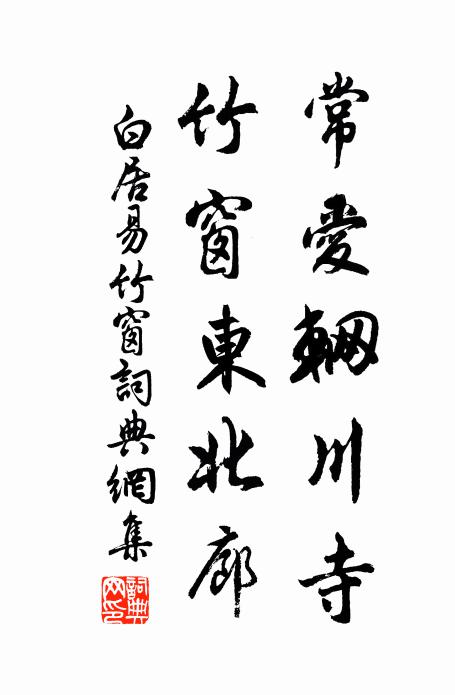 常愛輞川寺
竹窗東北廊
白居易竹窗詞典網集
詞典網印